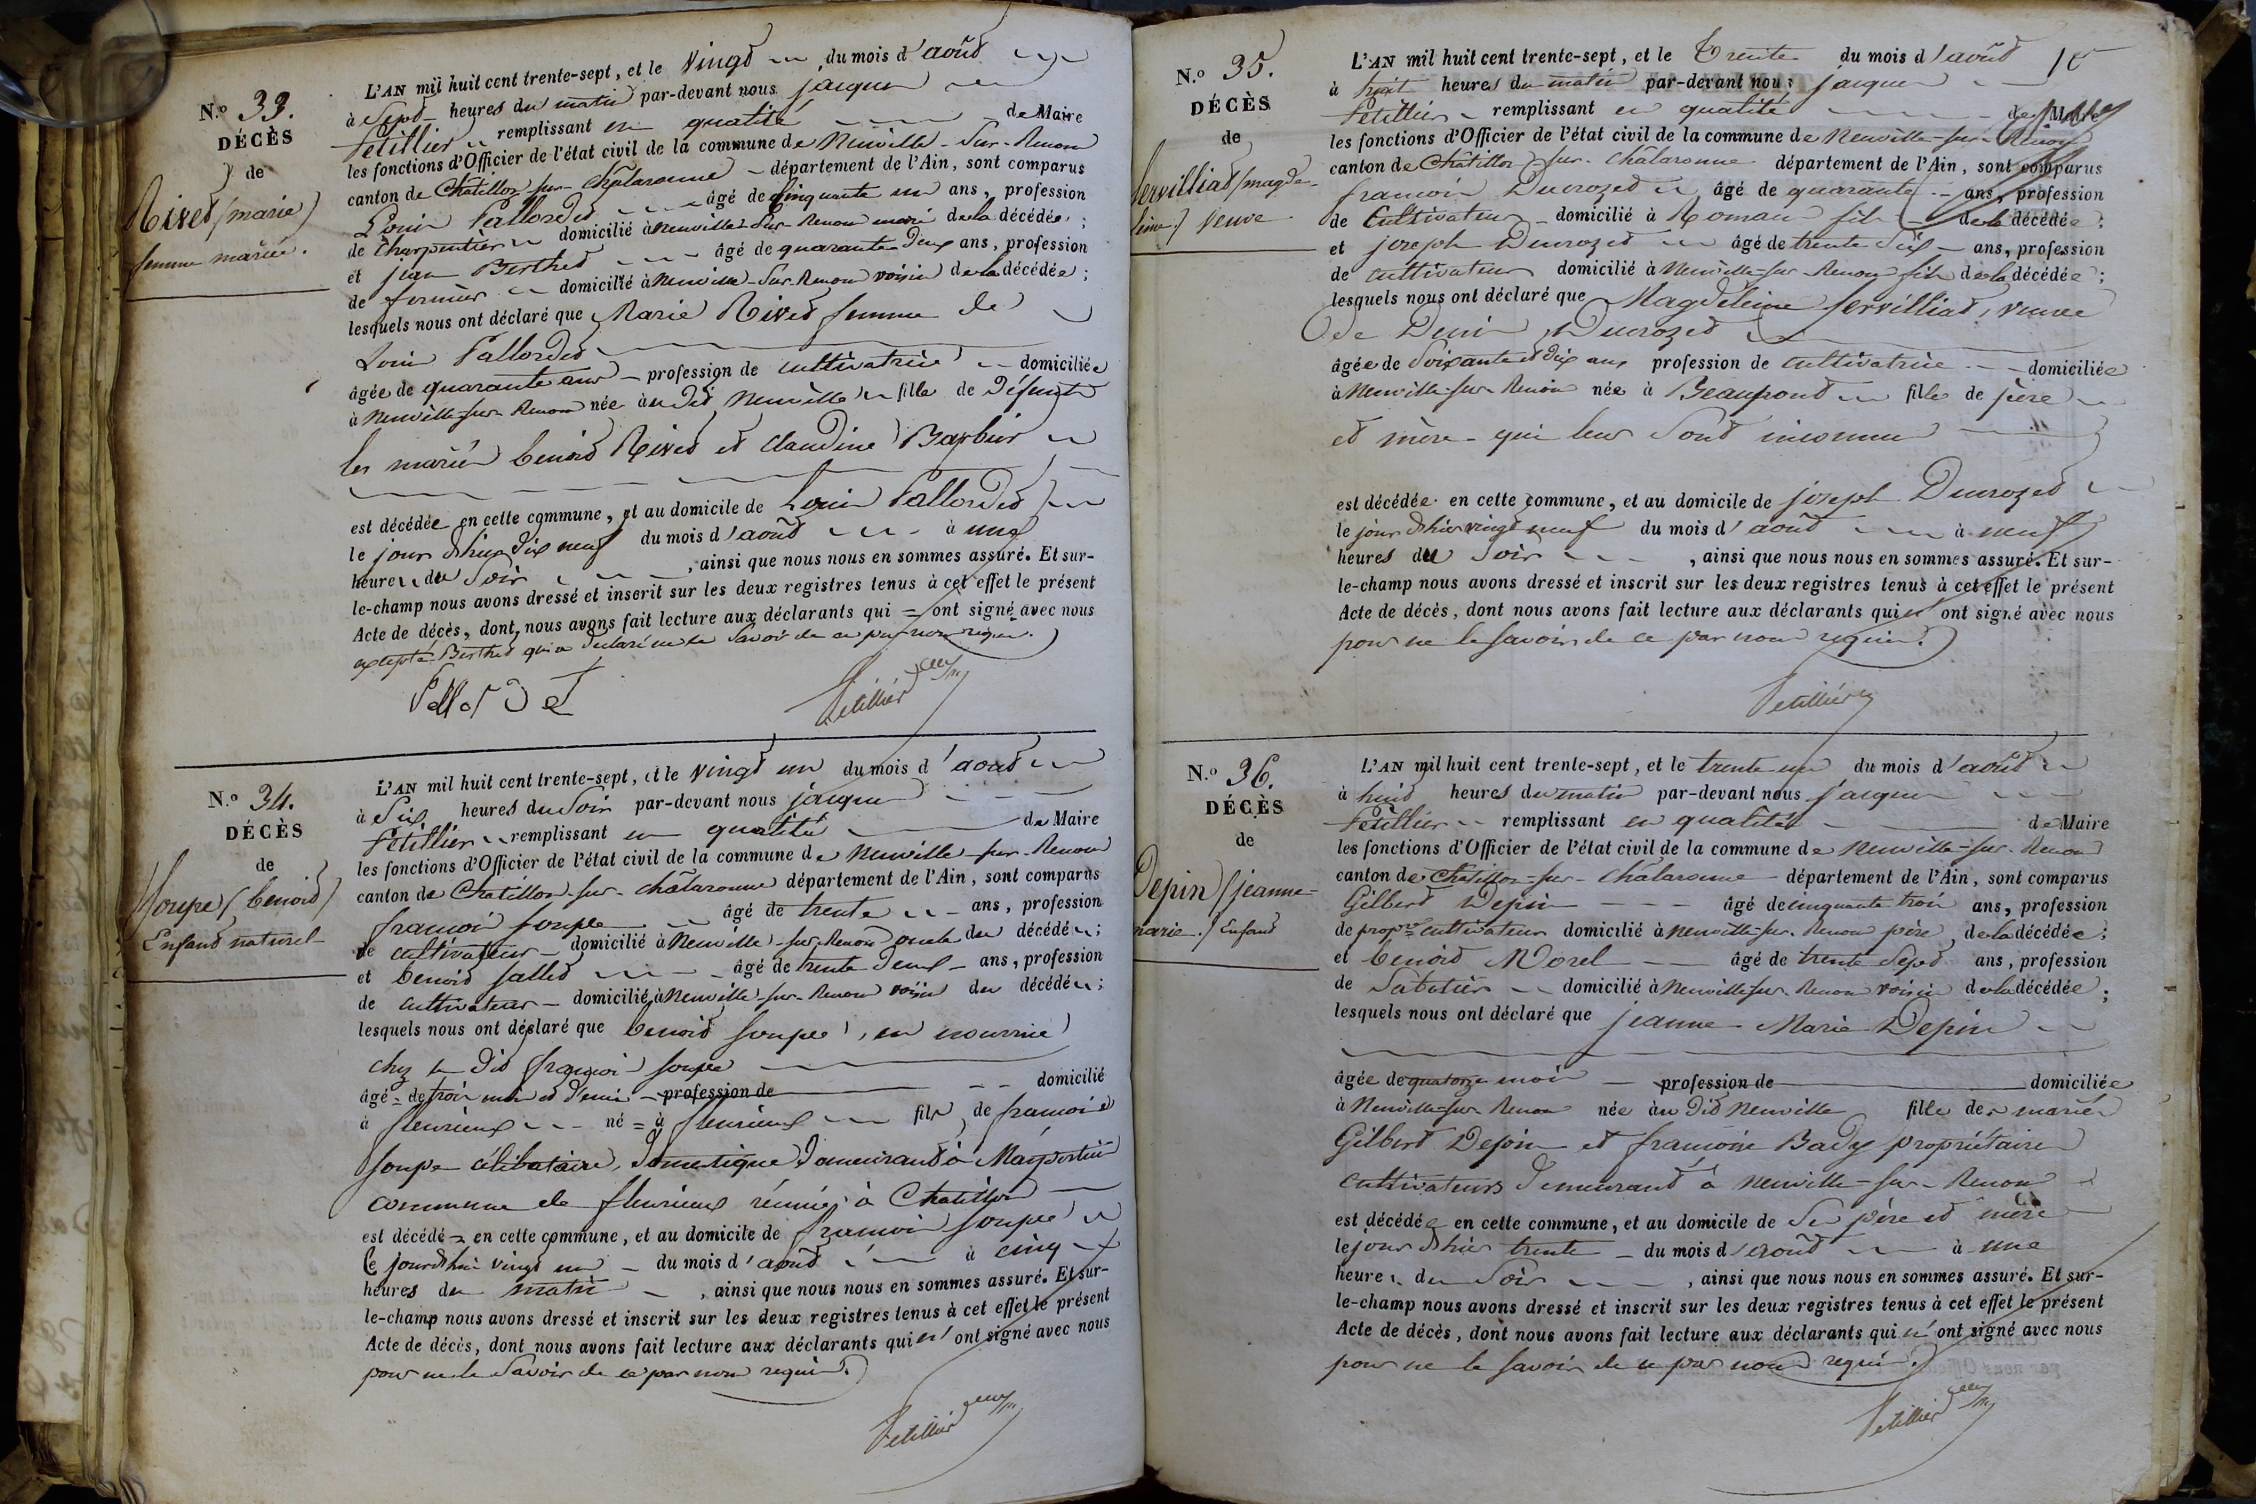 N.º 33.
DÉCÈS
de
Rivet (marie)
femme mariée.
L'AN mil huit cent trente-sept, et le vingt du mois d'août
à sept heures du matin par-devant nous jacques
Petillier remplissant en qualité de Maire
les fonctions d'Officier de l'état civil de la commune de Neuville-sur-Renon
canton de Châtillon-sur-Châlaronne département de l'Ain, sont comparus
Louis Pallordet âgé de cinquante un ans, profession
de Charpentier domicilié à neuville-sur-Renon mari de la décédée;
et jean Berthet âgé de quarante deux ans, profession
de fermier domicilié à Neuville-sur-Renon voisin de la décédée;
lesquels nous ont déclaré que Marie Rivet femme de
Louis Pallordet
âgée de quarante ans profession de cultivatrice domiciliée
à Neuville-sur-Renon née à udit Neuville fille de défunts
les mariés benoit Rivet et Claudine Barbier
est décédée en cette commune, et au domicile de Louis Pallordet
le jour d'hier dix neuf du mois d'août à une
heure du soir, ainsi que nous nous en sommes assuré. Et sur-
le-champ nous avons dressé et inscrit sur les deux registres tenus à cet effet le présent
Acte de décès, dont nous avons fait lecture aux déclarants qui = ont signé avec nous
excepté Berthet qui a déclaré ne le savoir de ce par nous requis.
Pallordet Petillier
N.º 34.
DÉCÈS
de
Soupe (benoit)
Enfant naturel
L'AN mil huit cent trente-sept, et le vingt un du mois d'août
à six heures du soir par-devant nous jacques
Petillier remplissant en qualité de Maire
les fonctions d'Officier de l'état civil de la commune de Neuville-sur-Renon
canton de Chatillon-sur-châlaronne département de l'Ain, sont comparus
françois soupe âgé de trente ans, profession
de cultivateur domicilié à Neuville-sur-Renon oncle du décédé;
et benoit sallet âgé de trente deux ans, profession
de cultivateur domicilié à Neuville-sur-Renon voisin du décédé;
lesquels nous ont déclaré que benoit soupe, en nourrice
chez le dit françois soupe
âgé = de trois mois et demi profession de domicilié
à fleurieux né = à fleurieux fils de francoise
soupe célibataire, domestique demeurant à
commune de fleurieux réunie à Chatillon
est décédé = en cette commune, et au domicile de françois soupe
le jourd'hui vingt un du mois d'août à cinq
heures du matin, ainsi que nous nous en sommes assuré. Et sur-
le-champ nous avons dressé et inscrit sur les deux registres tenus à cet effet le présent
Acte de décès, dont nous avons fait lecture aux déclarants qui n'ont signé avec nous
pour ne le savoir de ce par nous requis.
Petillier
N.º 35.
DÉCÈS
de
Servilliat (magde-
leine) veuve
15
L'AN mil huit cent trente-sept, et le trente du mois d'août
à huit heures du matin par-devant nous jacques
Petillier remplissant en qualité de Maire
les fonctions d'Officier de l'état civil de la commune de Neuville-sur-Renon
canton de Châtillon-sur-châlaronne département de l'Ain, sont comparus
francois Ducrozet âgé de quarante ans, profession
de Cultivateur domicilié à Romans fils de la décédée;
et joseph Ducrozet âgé de trente six ans, profession
de cultivateur domicilié à Neuville-sur-Renon fils de la décédée;
lesquels nous ont déclaré que Magdeleine servilliat, veuve
de Denis Ducrozet
âgée de soixante et dix ans profession de cultivatrice domiciliée
à Neuville-sur-Renon née à Beaupont fille de père
et mère qui leur sont inconnus
est décédée en cette commune, et au domicile de joseph Ducrozet
le jour d'hier vingt neuf du mois d'août à neuf
heures du soir, ainsi que nous nous en sommes assuré. Et sur-
le-champ nous avons dressé et inscrit sur les deux registres tenus à cet effet le présent
Acte de décès, dont nous avons fait lecture aux déclarants qui n'ont signé avec nous
pour ne le savoir de ce par nous requis.
Petillier
N.º 36.
DÉCÈS
de
Depin (jeanne-
marie.) Enfant
L'AN mil huit cent trente-sept, et le trente un du mois d'août
à huit heures du matin par-devant nous jacques
Petillier remplissant en qualité de Maire
les fonctions d'Officier de l'état civil de la commune de Neuville-sur-Renon
canton de Châtillon-sur-Châlaronne département de l'Ain, sont comparus
Gilbert Depin âgé de cinquante trois ans, profession
de propre cultivateur domicilié à neuville-sur-Renon père de la décédée;
et benoit Morel âgé de trente sept ans, profession
de sabotier domicilié à Neuville-sur-Renon voisin de la décédée;
lesquels nous ont déclaré que jeanne-Marie Depin
âgée de quatorze mois profession de domiciliée
à Neuville-sur-Renon née à u dit Neuville fille des mariés
Gilbert Depin et francoise Bady propriétaire
cultivateurs demeurant à neuville-sur-Renon
est décédée en cette commune, et au domicile de ses père et mère
le jour d'hier trente du mois d'août à une
heure du soir, ainsi que nous nous en sommes assuré. Et sur-
le-champ nous avons dressé et inscrit sur les deux registres tenus à cet effet le présent
Acte de décès, dont nous avons fait lecture aux déclarants qui n'ont signé avec nous
pour ne le savoir de ce par nous requis.
Petillier